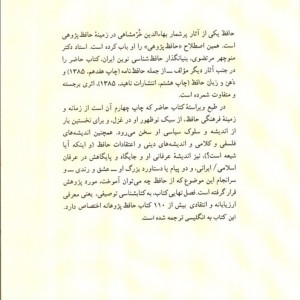 حافظ یکی از آثار پرشمار بهاءالدین خرّمشاهی در زمینهٔ حافظ پژوهی
است. همین اصطلاح «حافظ پژوهی» را او باب کرده است. استاد دکتر
منوچهر مرتضوی، بنیانگذار حافظ‌شناسی نوین ایران، کتاب حاضر را
در جنب آثار دیگر مؤلف ــ از جمله حافظ‌نامه (چاپ هفدهم، ۱۳۸۵)،
ذهن و زبان حافظ (چاپ هشتم، انتشارات ناهید، ۱۳۸۵)، اثری برجسته
و متفاوت شمرده است.
در طبع و ویراستهٔ کتاب حاضر که چاپ چهارم آن است از زمانه و
زمینهٔ فرهنگی حافظ، از سبک نوظهور او در غزل، و برای نخستین بار
از اندیشه و سلوک سیاسی او سخن می‌رود. همچنین اندیشه‌های
فلسفی و کلامی و اندیشه‌های دینی و اعتقادات حافظ (و اینکه آیا
شیعه است؟)، نیز اندیشهٔ عرفانی او و جایگاه و پایگاهش در عرفان
اسلامی/ ایرانی، و دو پیام یا دستاورد بزرگ او ــ عشق و رندی ــ و
سرانجام این موضوع که از حافظ چه می‌توان آموخت، مورد پژوهش
قرار گرفته است. فصل نهایی کتاب، به کتابشناسی توصیفی، یعنی معرفی
ارزیابانه و انتقادی بیش از ۱۱۰ کتاب حافظ پژوهانه اختصاص دارد.
این کتاب به انگلیسی ترجمه شده است.